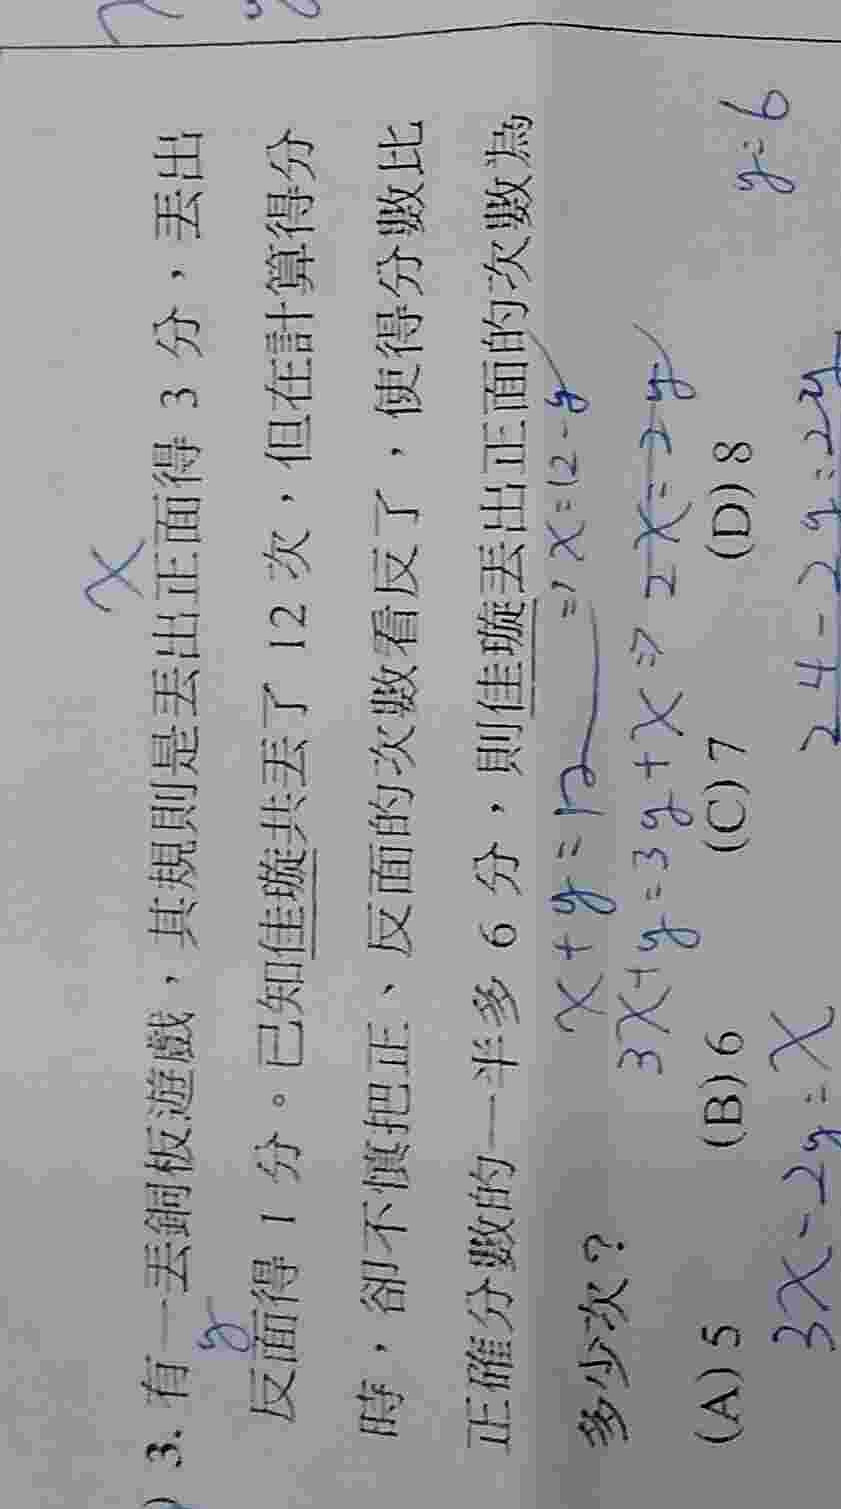 x
3. 有一丟銅板遊戲，其規則是丟出正面得 3 分，丟出
y
反面得 1 分。已知佳璇共丟了 12 次，但在計算得分
時，卻不慎把正、反面的次數看反了，使得分數比
正確分數的一半多 6 分，則佳璇丟出正面的次數為
多少次？
x+y=12 ⇒ x=12-y
3x+y=3y+x ⇒ 2x=2y
(A) 5 (B) 6 (C) 7 (D) 8
y=6
3x-2y=x
24-2y=2y